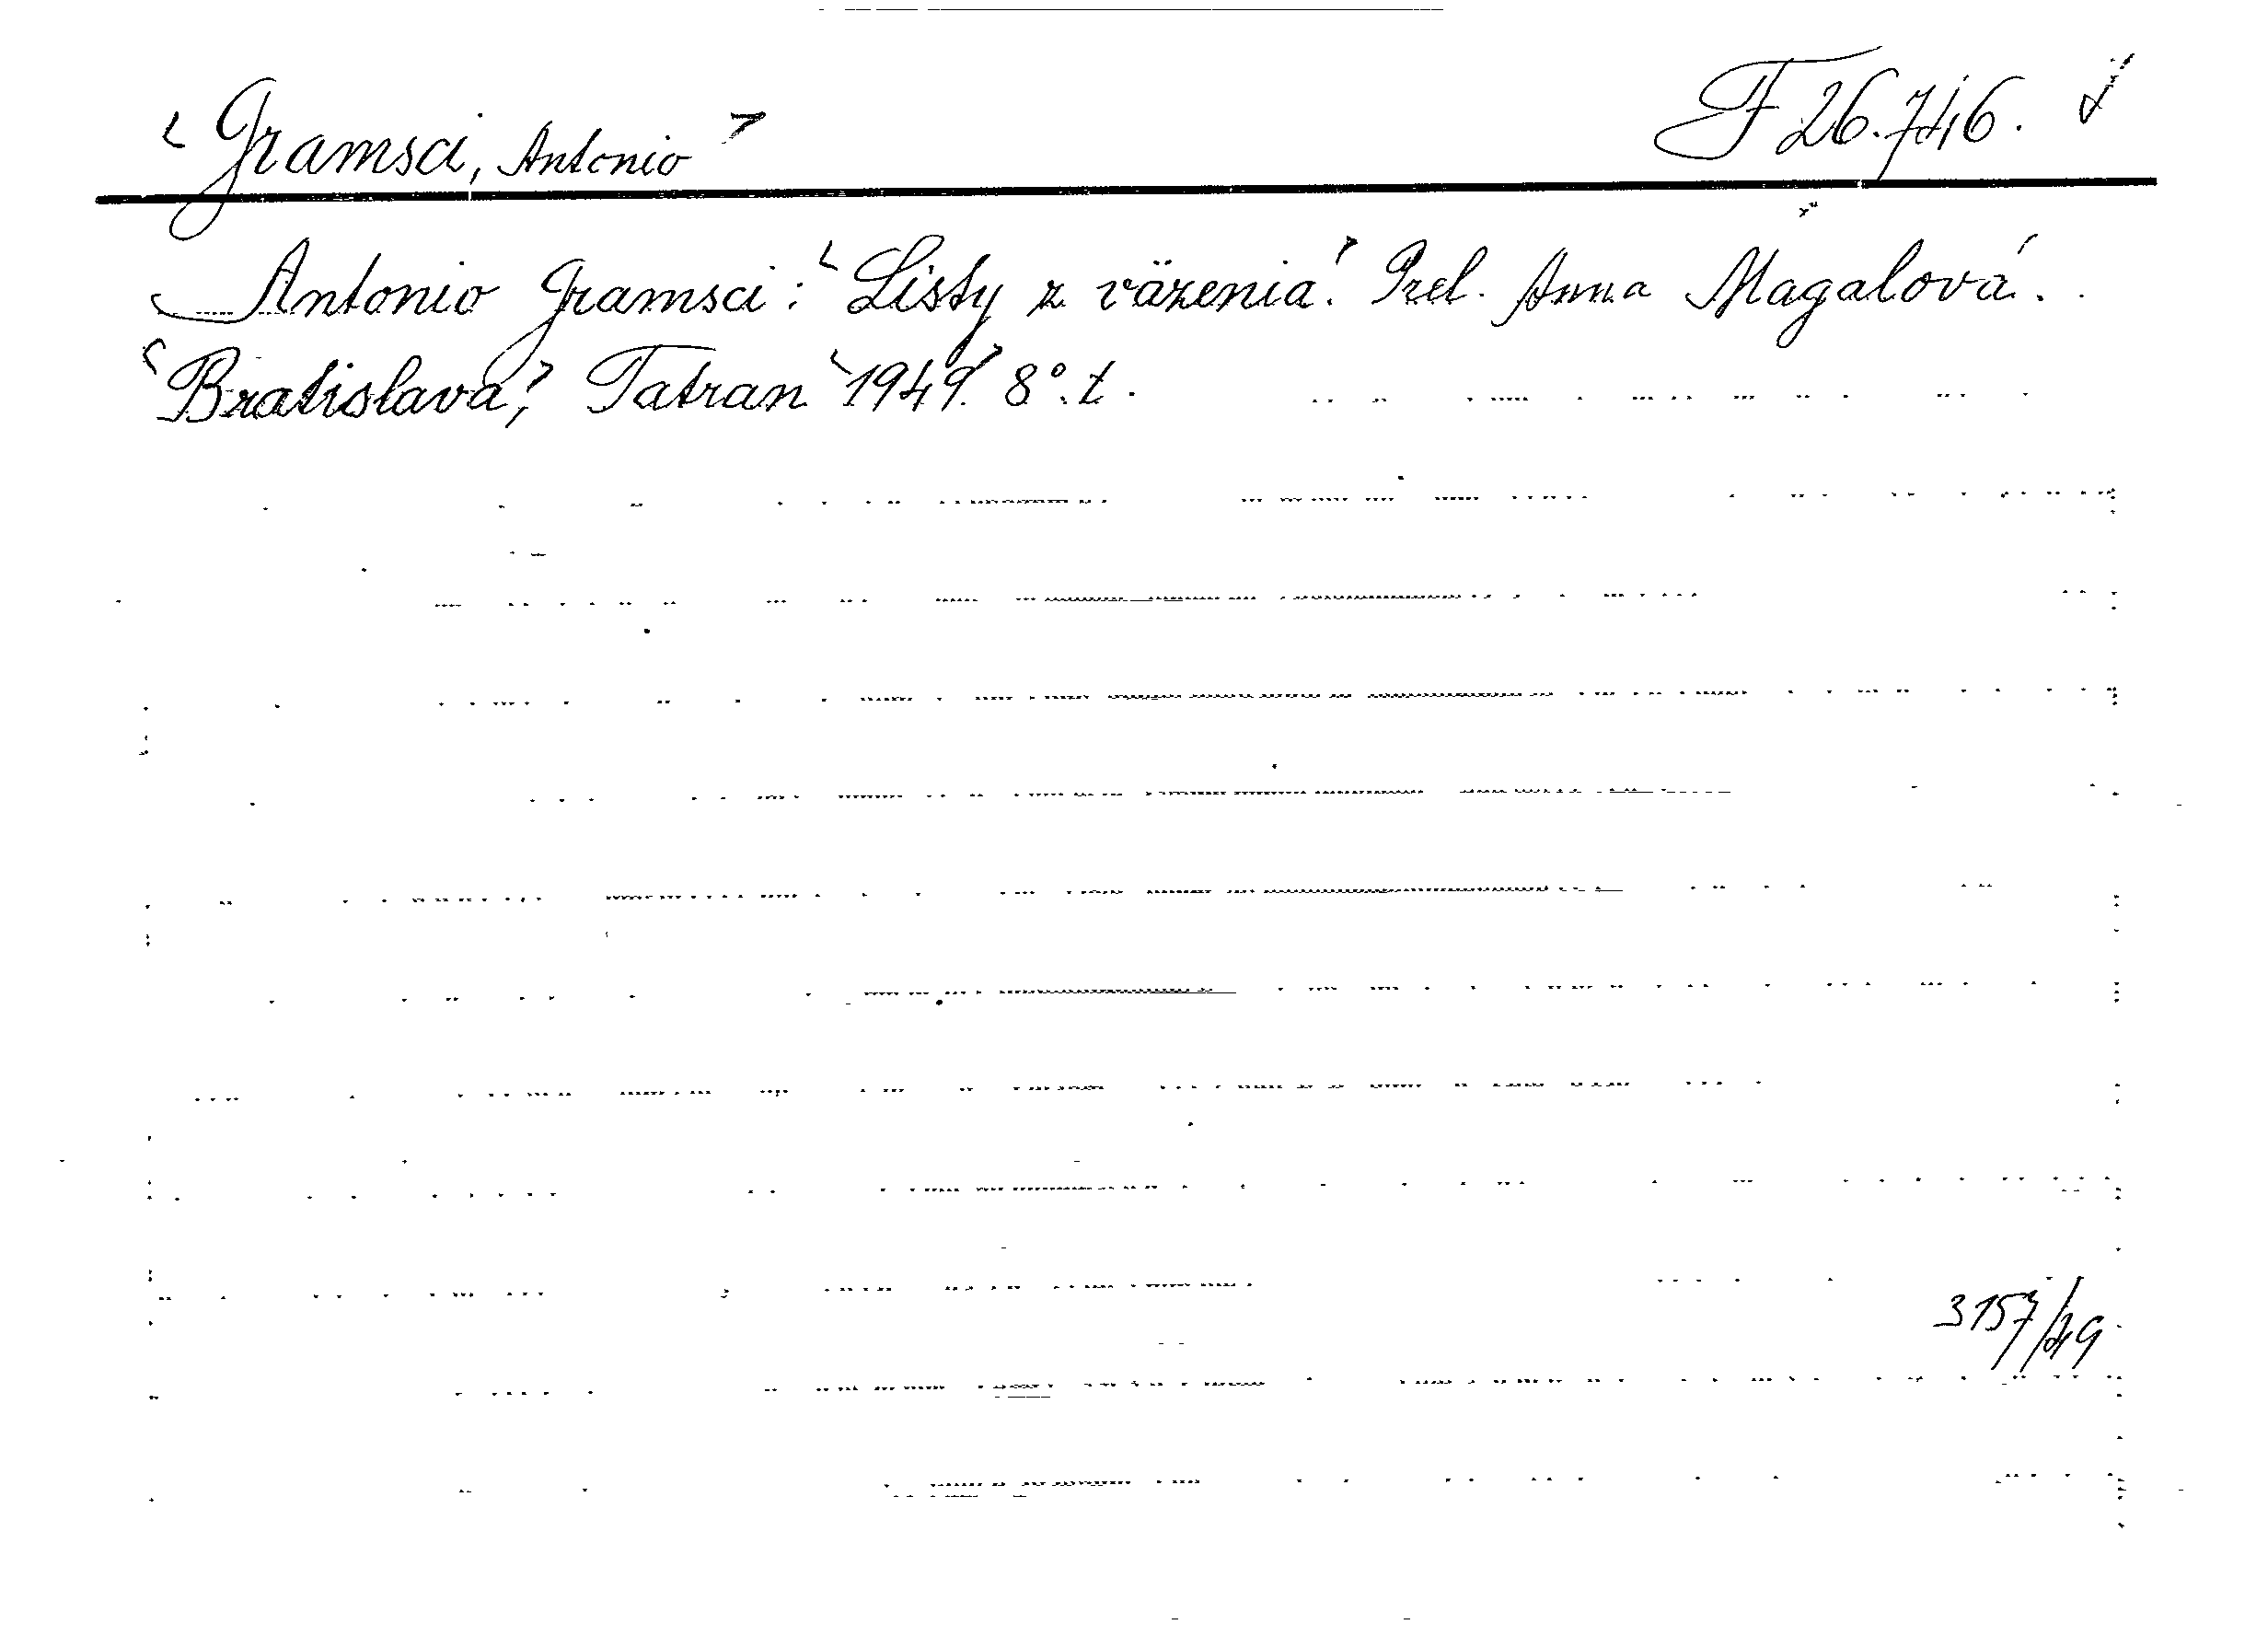 ‹Gramsci, Antonio› F 26.746.
Antonio Gramsci: ‹Listy z väzenia.› Prel. Anna Magalová.
‹Bratislava,› Tatran ‹1949.› 8°. t.
3157/49